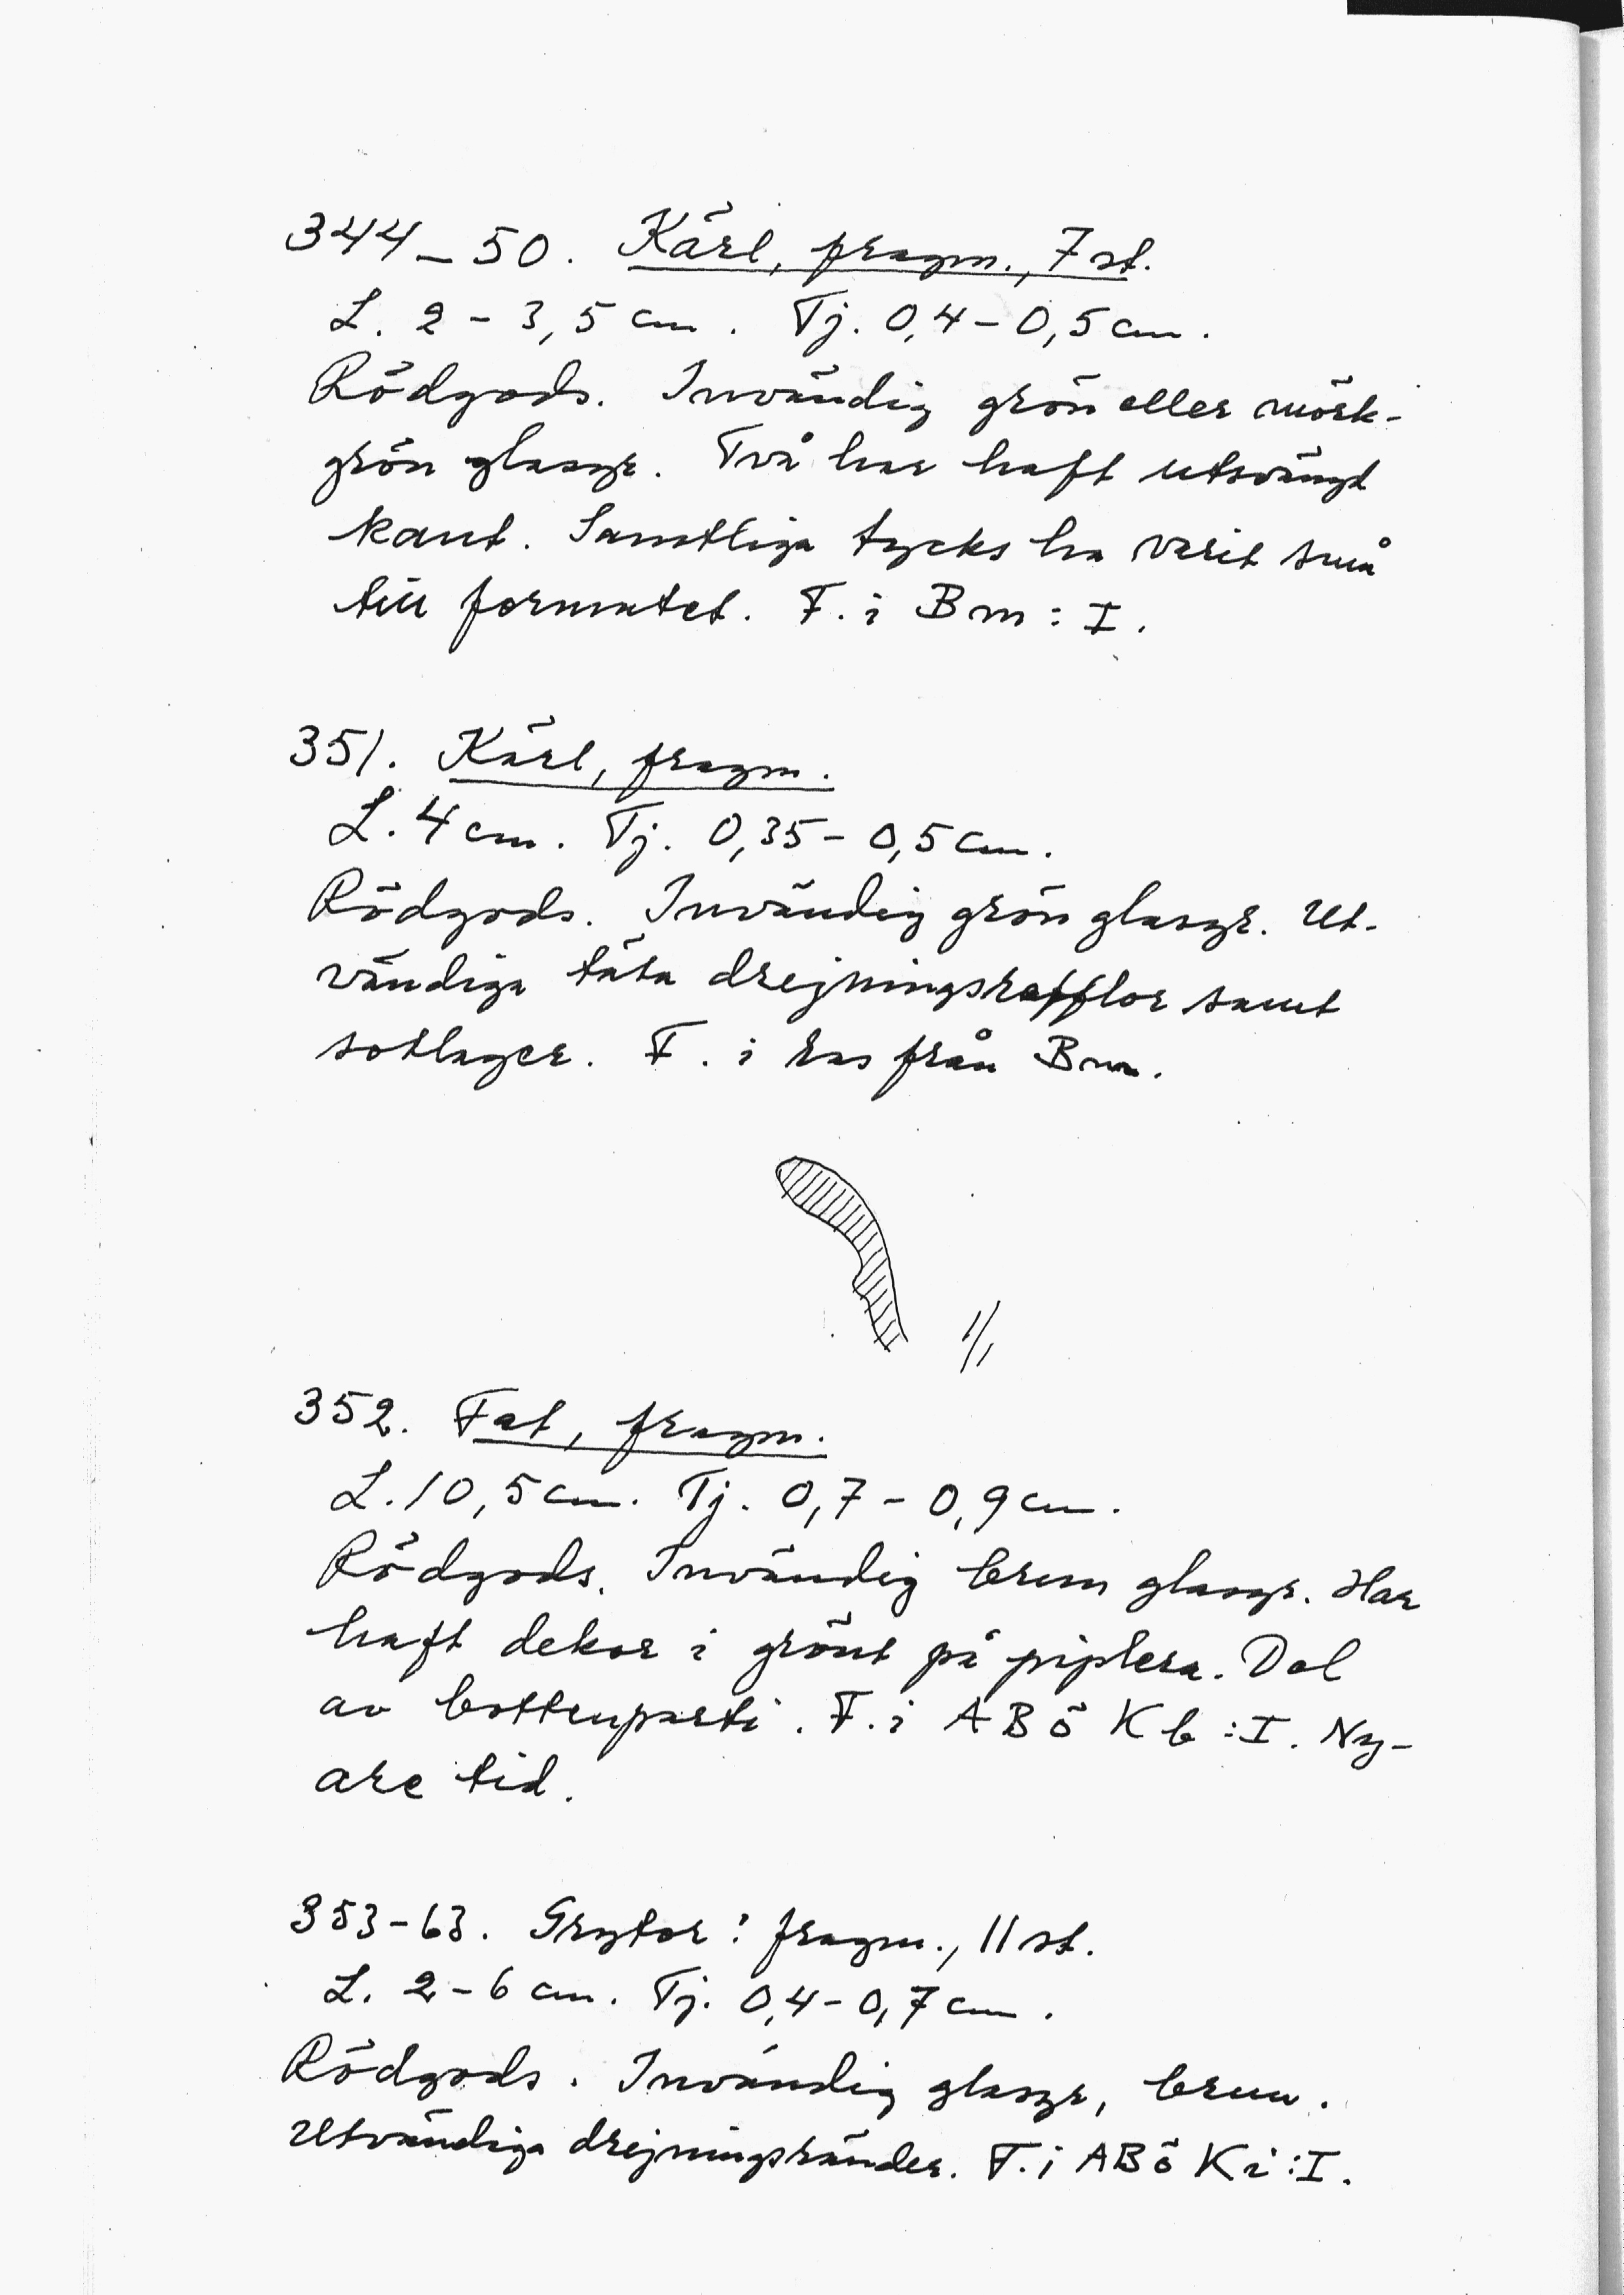 344–50. Kärl, fragm., 7 st.
L. 2 – 3,5 cm. Tj. 0,4 – 0,5 cm.
Rödgods. Invändig grön eller mörk-
grön glasyr. Två har haft utsvängd
kant. Samtliga tycks ha varit små
till formatet. F. i Bm : I.
351. Kärl, fragm.
L. 4 cm. Tj. 0,35 – 0,5 cm.
Rödgods. Invändig grön glasyr. Ut-
vändiga täta drejningsrefflor samt
sotlager. F. i ras från Bm.
1/1
352. Fat, fragm.
L. 10,5 cm. Tj. 0,7 – 0,9 cm.
Rödgods. Invändig brun glasyr. Har
haft dekor i grönt på piplera. Del
av bottenparti. F. i ABö Kb : I. Ny-
are tid.
353–63. Grytor? fragm., 11 st.
L. 2 – 6 cm. Tj. 0,4 – 0,7 cm.
Rödgods. Invändig glasyr, brun.
Utvändiga drejningsränder. F. i ABö Ki : I.